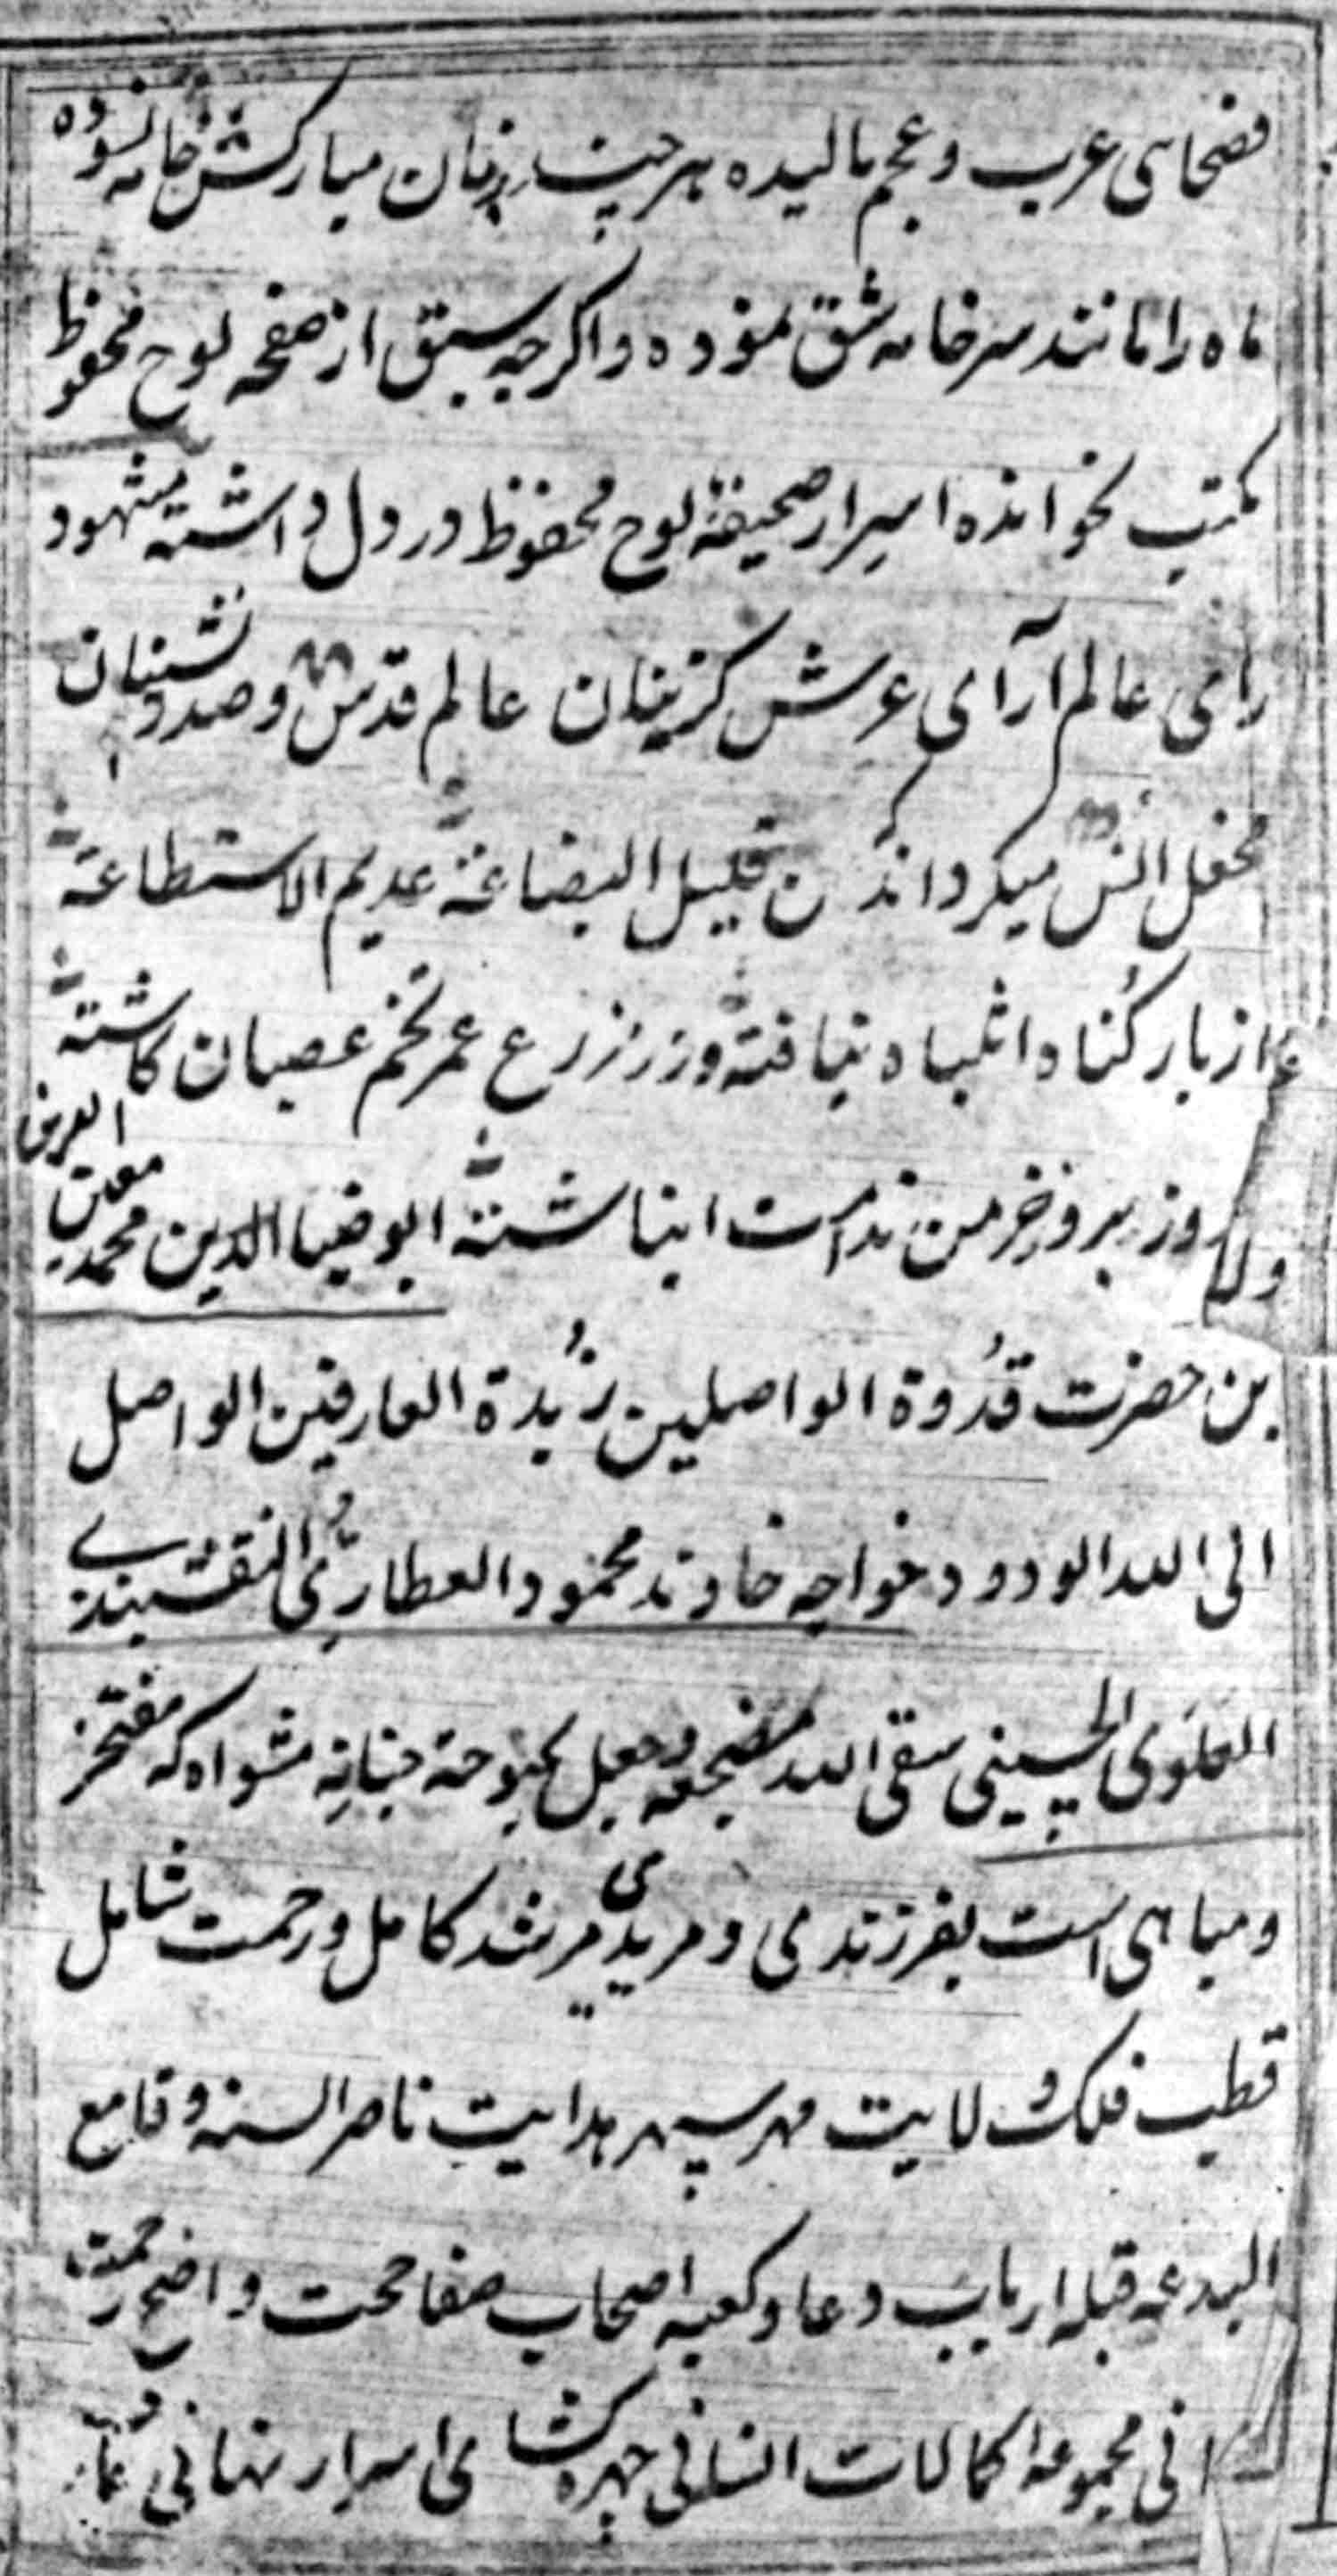 فصحای عرب و عجم مالیده هر چند بنان مبارکش خامه نسوده
ماه را مانند سر خامه شق نموده و اکرچه سبق از صفحه لوح محفوظ
مکتب نخوانده اسرار صحیفهٔ لوح محفوظ در دل داشته مشهود
رای عالم آرای عرش کزینان عالم قدس و صدر نشینان
محفل انس میکرداند قلیل البضاعة عدیم الاستطاعة
از بار کناه انتباه نیافته و در مزرع عمر تخم عصیان کاشته
روز بروز خرمن ندامت انباشته ابو ضیا الدین محمد معین الدین
بن حضرت قدوة الواصلین زبدة العارفین الواصل
الی الله الودود خواجه خاوند محمود العطاری النقشبندی
العلوی الحسینی سقی الله مضجعه و جعل بحبوحة جنانه مثواه که مفتخر
و مباهی است بفرزندی و مریدی مرشد کامل و رحمت شامل
قطب فلک ولایت مهر سپهر هدایت ناصر السنه و قامع
البدعه قبله ارباب دعا و کعبه اصحاب صفا حجت واضح رحمت
مجموعه کمالات انسانی چهره کشای اسرار نهانی